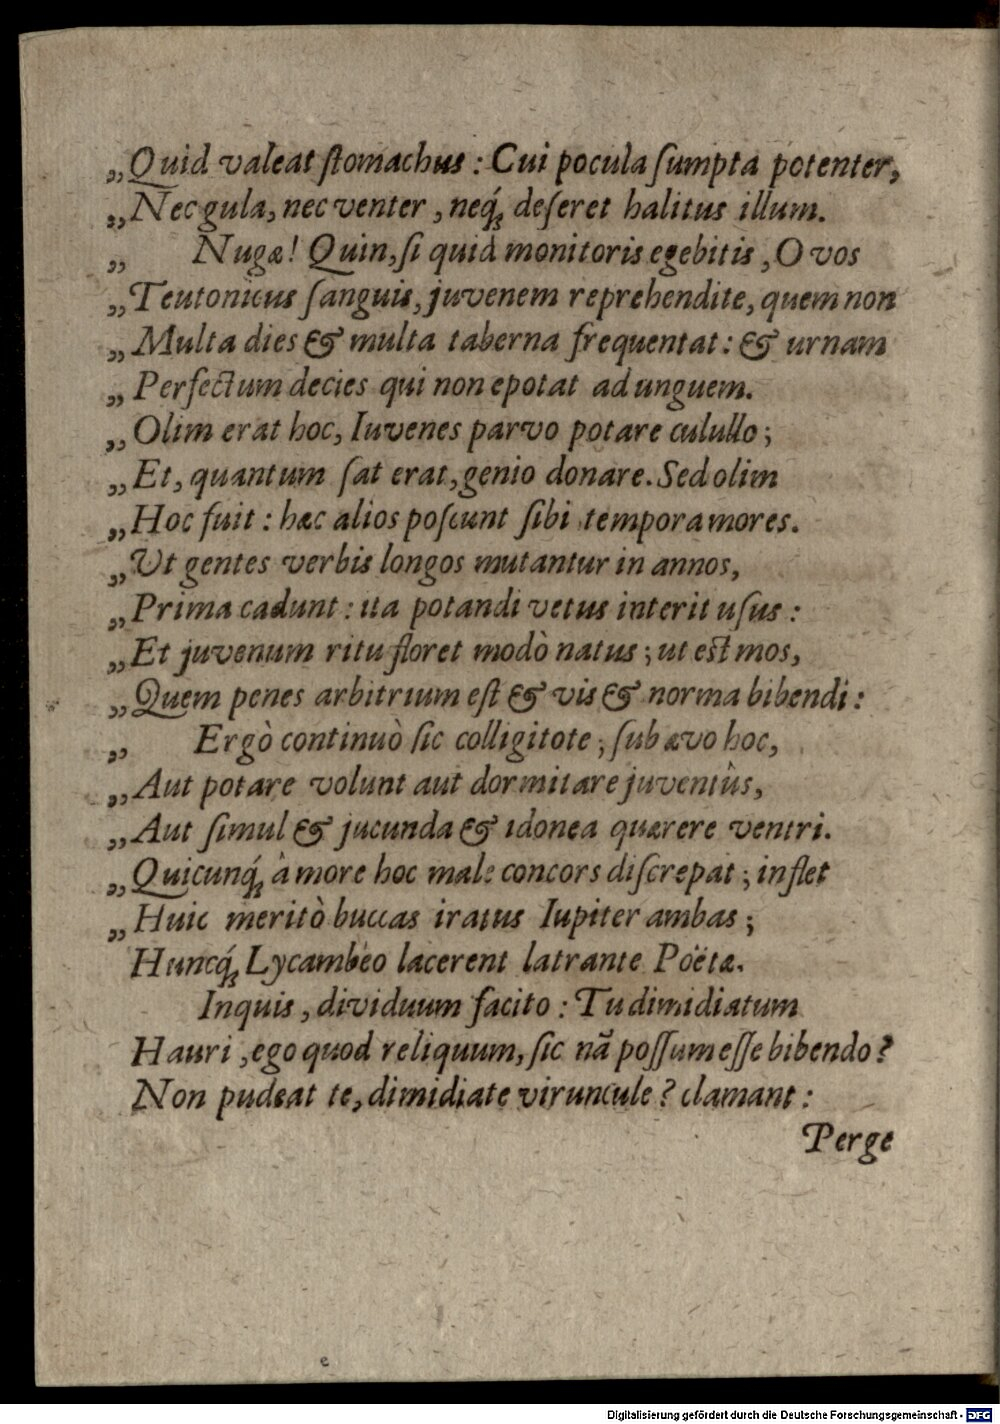 „Quid valeat ſtomachus : Cui pocula ſumpta potenter,
„Nec gula, nec venter, neq́; deſeret halitus illum.
„ Nugæ! Quin, ſi quid monitoris egebitis, O vos
„Teutonicus ſanguis, juvenem reprehendite, quem non
„Multa dies & multa taberna frequentat: & urnam
„Perfectum decies qui non epotat ad unguem.
„Olim erat hoc, Iuvenes parvo potare culullo ;
„Et, quantum ſat erat, genio donare. Sed olim
„Hoc fuit : hæc alios poſcunt ſibi tempora mores.
„Vt gentes verbis longos mutantur in annos,
„Prima cadunt : ita potandi vetus interit uſus :
„Et juvenum ritu floret modò natus ; ut eſt mos,
„Quem penes arbitrium eſt & vis & norma bibendi :
„ Ergò continuò ſic colligitote ; ſub ævo hoc,
„Aut potare volunt aut dormitare juventùs,
„Aut ſimul & jucunda & idonea quærere ventri.
„Quicunq́; à more hoc male concors diſcrepat ; inflet
„Huic meritò buccas iratus Iupiter ambas ;
Huncq́; Lycambëo lacerent latrante Poëtæ.
Inquis, dividuum facito : Tu dimidiatum
Hauri, ego quod reliquum, ſic nã poſſum eſſe bibendo ?
Non pudeat te, dimidiate viruncule ? clamant :
Perge
e
Digitalisierung gefördert durch die Deutsche Forschungsgemeinschaft - DFG